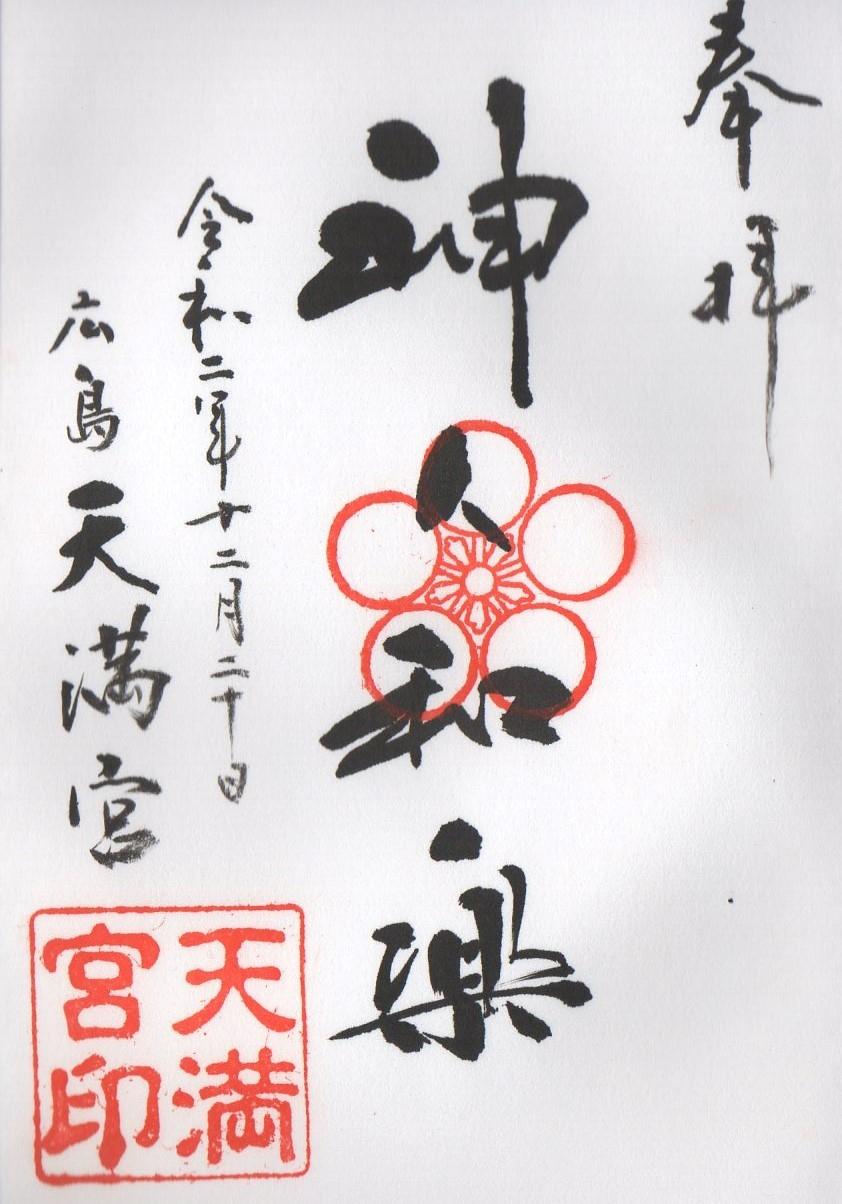 奉拝
神人和楽
令和二年十二月二十日
広島天満宮
天満宮印